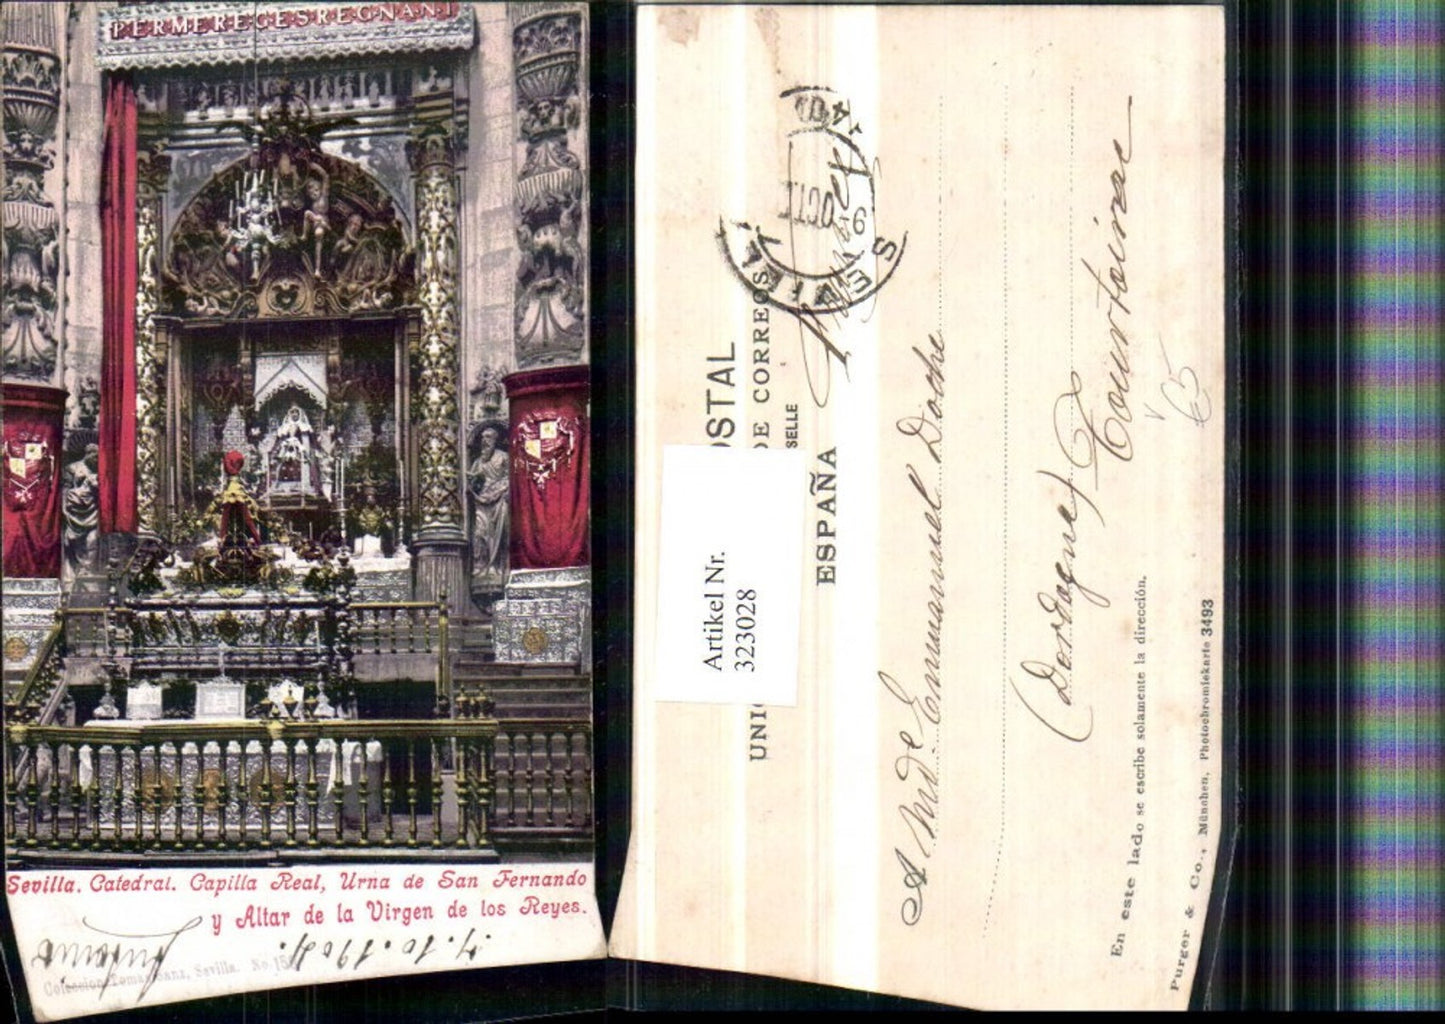 PERMEREGESREGNANT
Sevilla. Catedral. Capilla Real, Urna de San Fernando
y Altar de la Virgen de los Reyes.
Antonio
7.10.1904.
Coleccion Tomas Sanz, Sevilla. No. 15
OSTAL
UNIO DE CORREOS
SELLE
ESPAÑA
SEVILLA
OCT
04
Artikel Nr.
323028
A Mde Emmanuel Doche
Courtoisac
(Dordogne)
€5
En este lado se escribe solamente la dirección.
Purger & Co., München, Photochromiekarte 3493